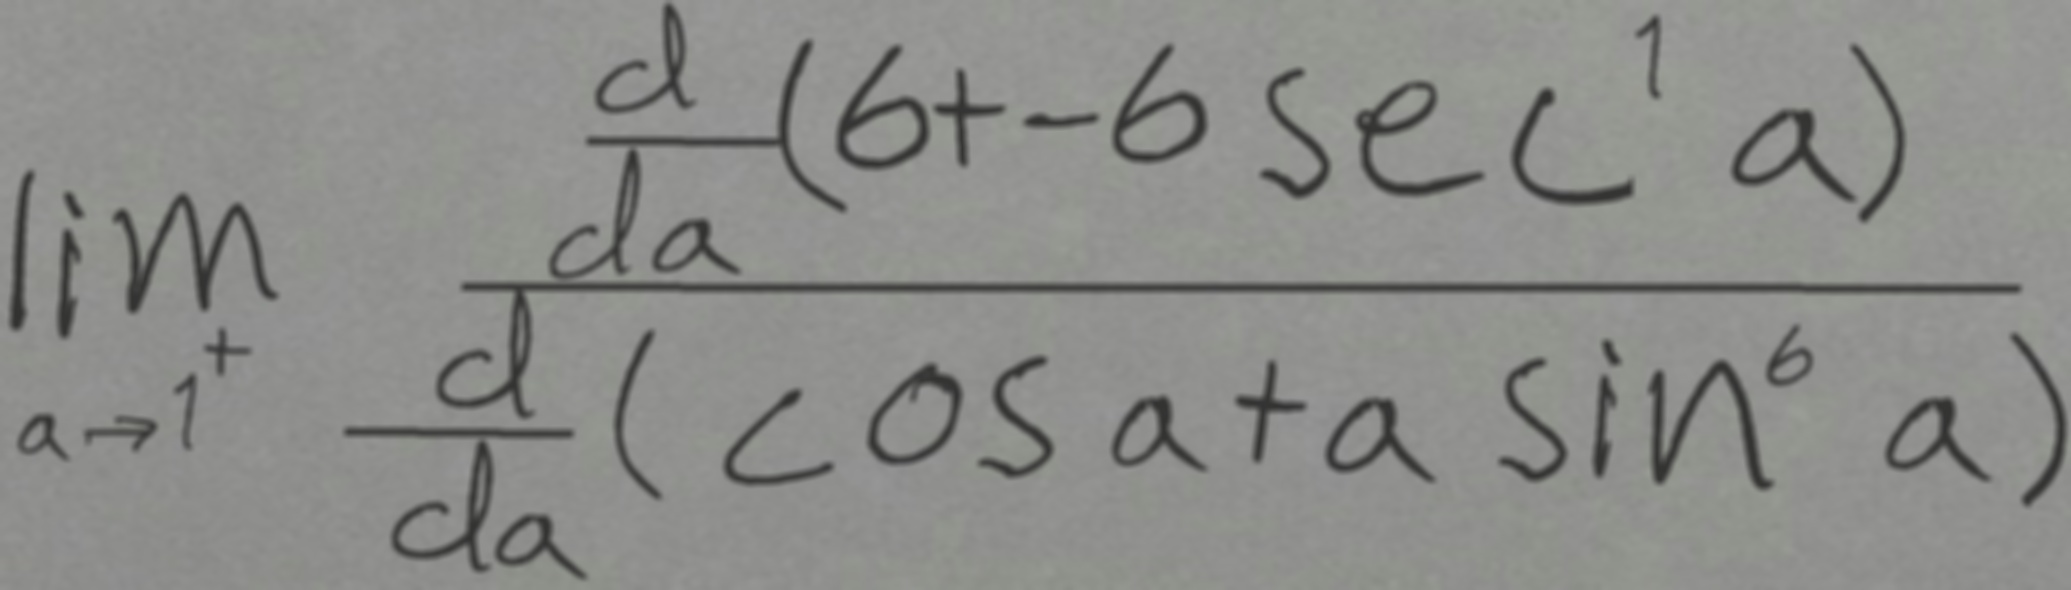 \lim_{a \to 1^+} \frac{\frac{d}{da}(6+-6\sec^1 a)}{\frac{d}{da}(\cos a+a\sin^6 a)}